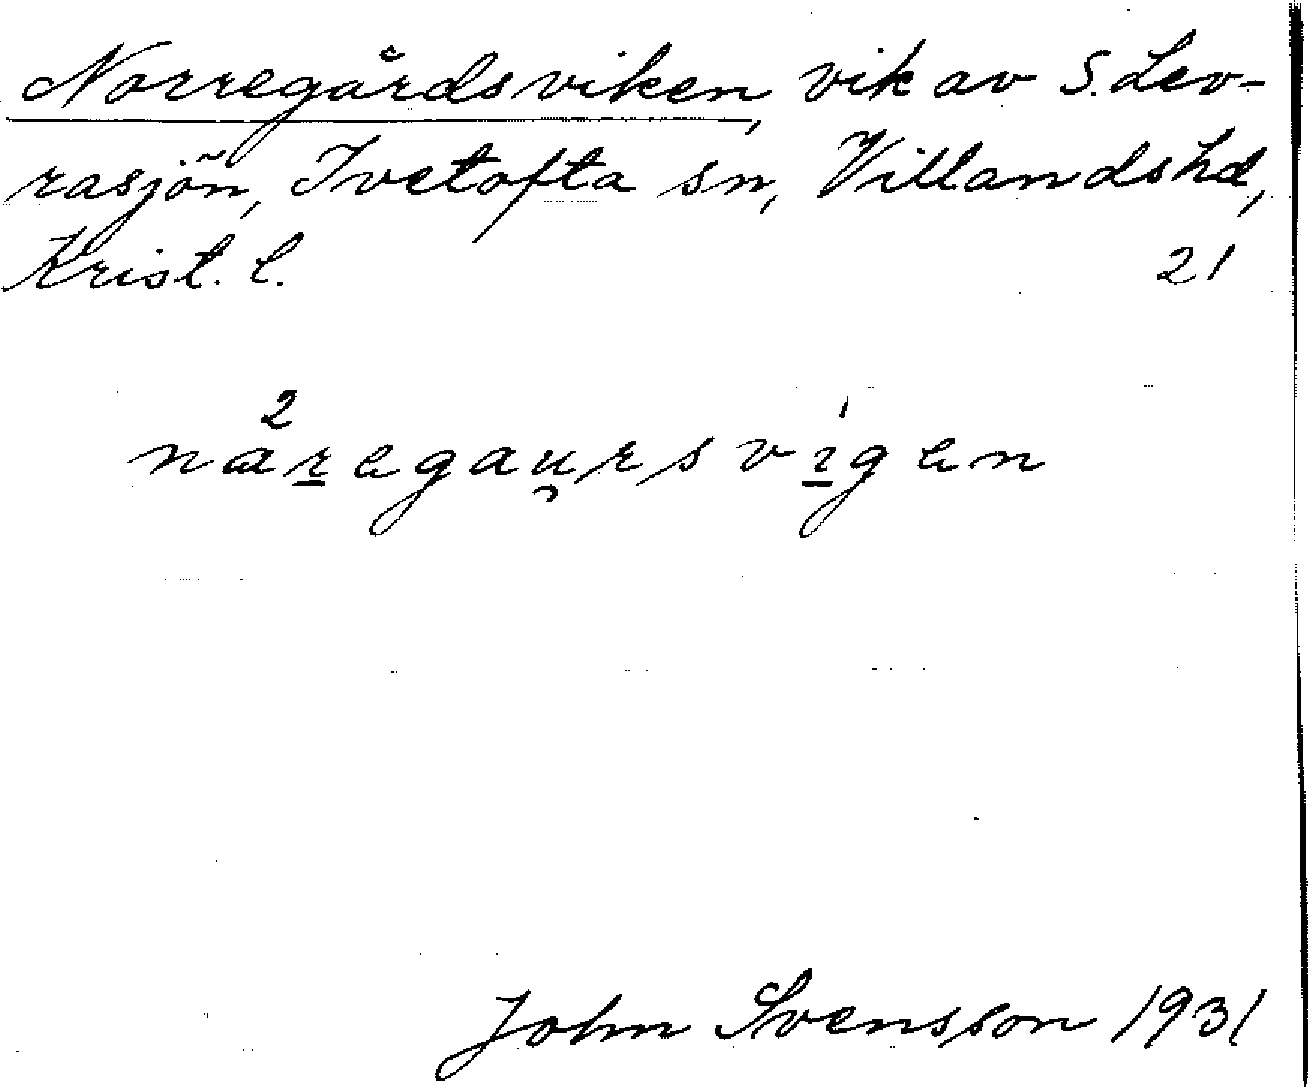 Norregårdsviken, vik av S. Lev-
rasjön, Ivetofta sn, Villands hd,
Krist. l. 21
2 ı
nåregau̯rsvigen
John Svensson 1931